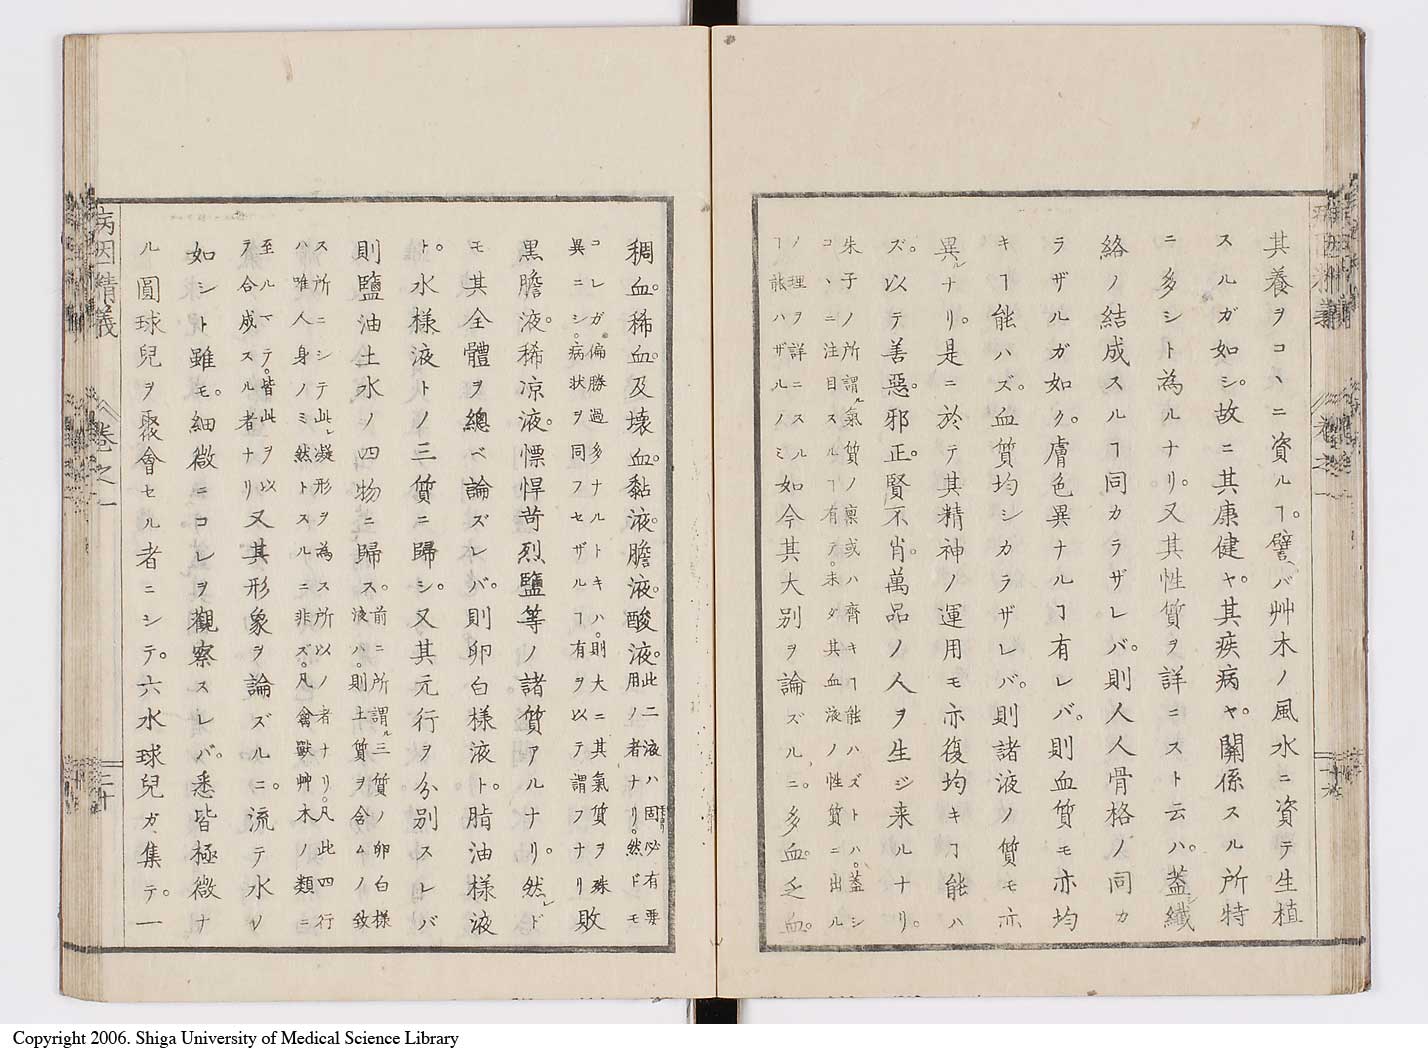 其養ヲコヽニ資ルヿ。譬バ艸木ノ風水ニ資テ生植
スルガ如シ。故ニ其康健ヤ。其疾病ヤ。關係スル所特
ニ多シト為ルナリ。又其性質ヲ詳ニスト云ハ。蓋シ纖
絡ノ結成スルヿ同カラザレバ。則人人骨格ノ同カ
ラザルガ如ク。膚色異ナルヿ有レバ。則血質モ亦均
キヿ能ハズ。血質均シカラザレバ。則諸液ノ質モ亦
異ルナリ。是ニ於テ其精神ノ運用モ亦復均キヿ能ハ
ズ。以テ善惡。邪正。賢不肖。萬品ノ人ヲ生ジ来ルナリ。
朱子ノ所謂ル氣質ノ稟或ハ齊キヿ能ハズトハ。蓋シ
コヽニ注目スルヿ有テ。未ダ其血液ノ性質ニ出ル
ノ理ヲ詳ニスル
ヿ能ハザルノミ如今其大別ヲ論ズルニ。多血。乏血。
稠血。稀血。及壊血。黏液。膽液。酸液。此二液ハ固必有要
用ノ者ナリ。然ドモ
コレガ偏勝過多ナルトキハ。則大ニ其氣質ヲ殊
異ニシ。病状ヲ同フセザルヿ有ヲ以テ謂フナリ敗
黒膽液。稀凉液。慓悍苛烈鹽等ノ諸質アルナリ。然レド
モ其全體ヲ總ベ論ズレバ。則卵白様液。ト。脂油様液
ト。水様液トノ三質ニ歸シ。又其元行ヲ分別スレバ
則鹽油土水ノ四物ニ歸ス。前ニ所謂ル三質ノ卵白様
液ハ。則土質ヲ含ムノ致
ス所ニシテ此レ凝形ヲ為ス所以ノ者ナリ。凡此四行
ハ唯人身ノミ然トスルニ非ズ。凡禽獸艸木ノ類ニ
至ルマデ。皆此ヲ以
テ合成スル者ナリ又其形象ヲ論ズルニ。流テ水ノ
如シト雖モ。細微ニコレヲ觀察スレバ。悉皆極微ナ
ル圓球兒ヲ聚會セル者ニシテ。六水球兒ガ集テ。一
病因精義
卷之一
二十
Copyright 2006. Shiga University of Medical Science Library